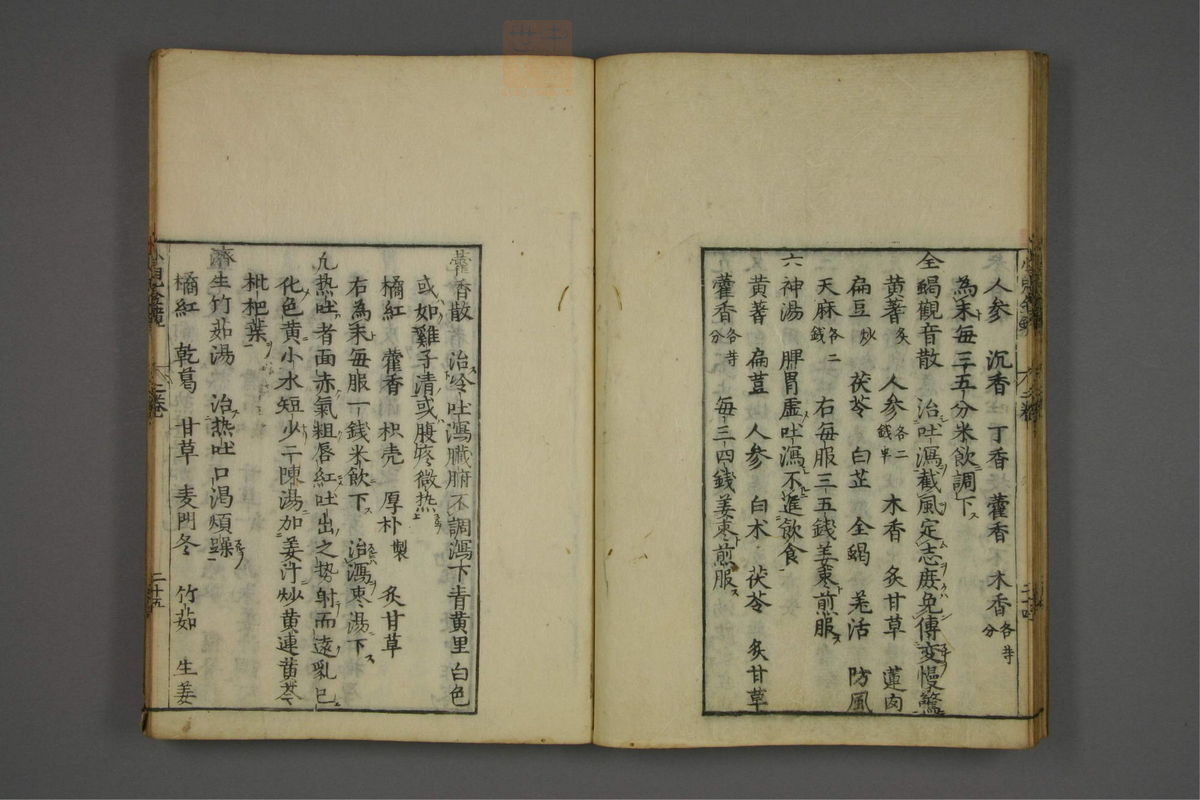 人参 沉香 丁香 藿香 木香各等分
為末每三五分米飲調下
全蝎觀音散 治吐瀉截風定志庶免傳変慢驚
黄蓍炙 人参各二錢半 木香 炙甘草 蓮肉
扁豆炒 茯苓 白芷 全蝎 羗活 防風
天麻各二錢 右每服三五錢姜棗煎服
六神湯 脾胃虛吐瀉不進飲食
黄蓍 扁荳 人参 白朮 茯苓 炙甘草
藿香各等分 每三四錢姜棗煎服
藿香散 治冷吐瀉臓腑不調瀉下青黄里白色
或如雞子清或腹疼微热
橘紅 藿香 枳壳 厚朴製 炙甘草
右為末每服一錢米飲下 治瀉棗湯下
凡热吐者面赤氣粗唇紅吐出之势射而遠乳已
化色黄小水短少二陳湯加姜汁炒黄連黄芩
枇杷葉
濟生竹茹湯 治热吐口渴煩躁
橘紅 乾葛 甘草 麦門冬 竹茹 生姜
二十五